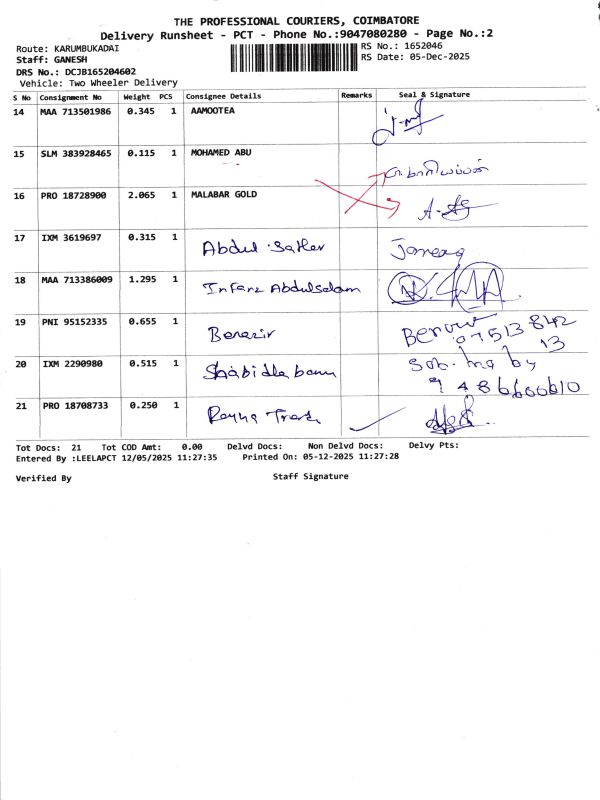 THE PROFESSIONAL COURIERS, COIMBATORE
Delivery Runsheet - PCT - Phone No.:9047080280 - Page No.:2
Route: KARUMBUKADAI RS No.: 1652046
Staff: GANESH RS Date: 05-Dec-2025
DRS No.: DCJB165204602
Vehicle: Two Wheeler Delivery
S No Consignment No Weight PCS Consignee Details Remarks Seal & Signature
14 MAA 713501986 0.345 1 AAMOOTEA
15 SLM 383928465 0.115 1 MOHAMED ABU
16 PRO 18728900 2.065 1 MALABAR GOLD
17 IXM 3619697 0.315 1 Abdul Sather
18 MAA 713386009 1.295 1 Infanz Abdulsalam
19 PNI 95152335 0.655 1 Benazir 97513 842
13
20 IXM 2290980 0.515 1 Shabidha banu
9486600610
21 PRO 18708733 0.250 1
Tot Docs: 21 Tot COD Amt: 0.00 Delvd Docs: Non Delvd Docs: Delvy Pts:
Entered By :LEELAPCT 12/05/2025 11:27:35 Printed On: 05-12-2025 11:27:28
Verified By Staff Signature